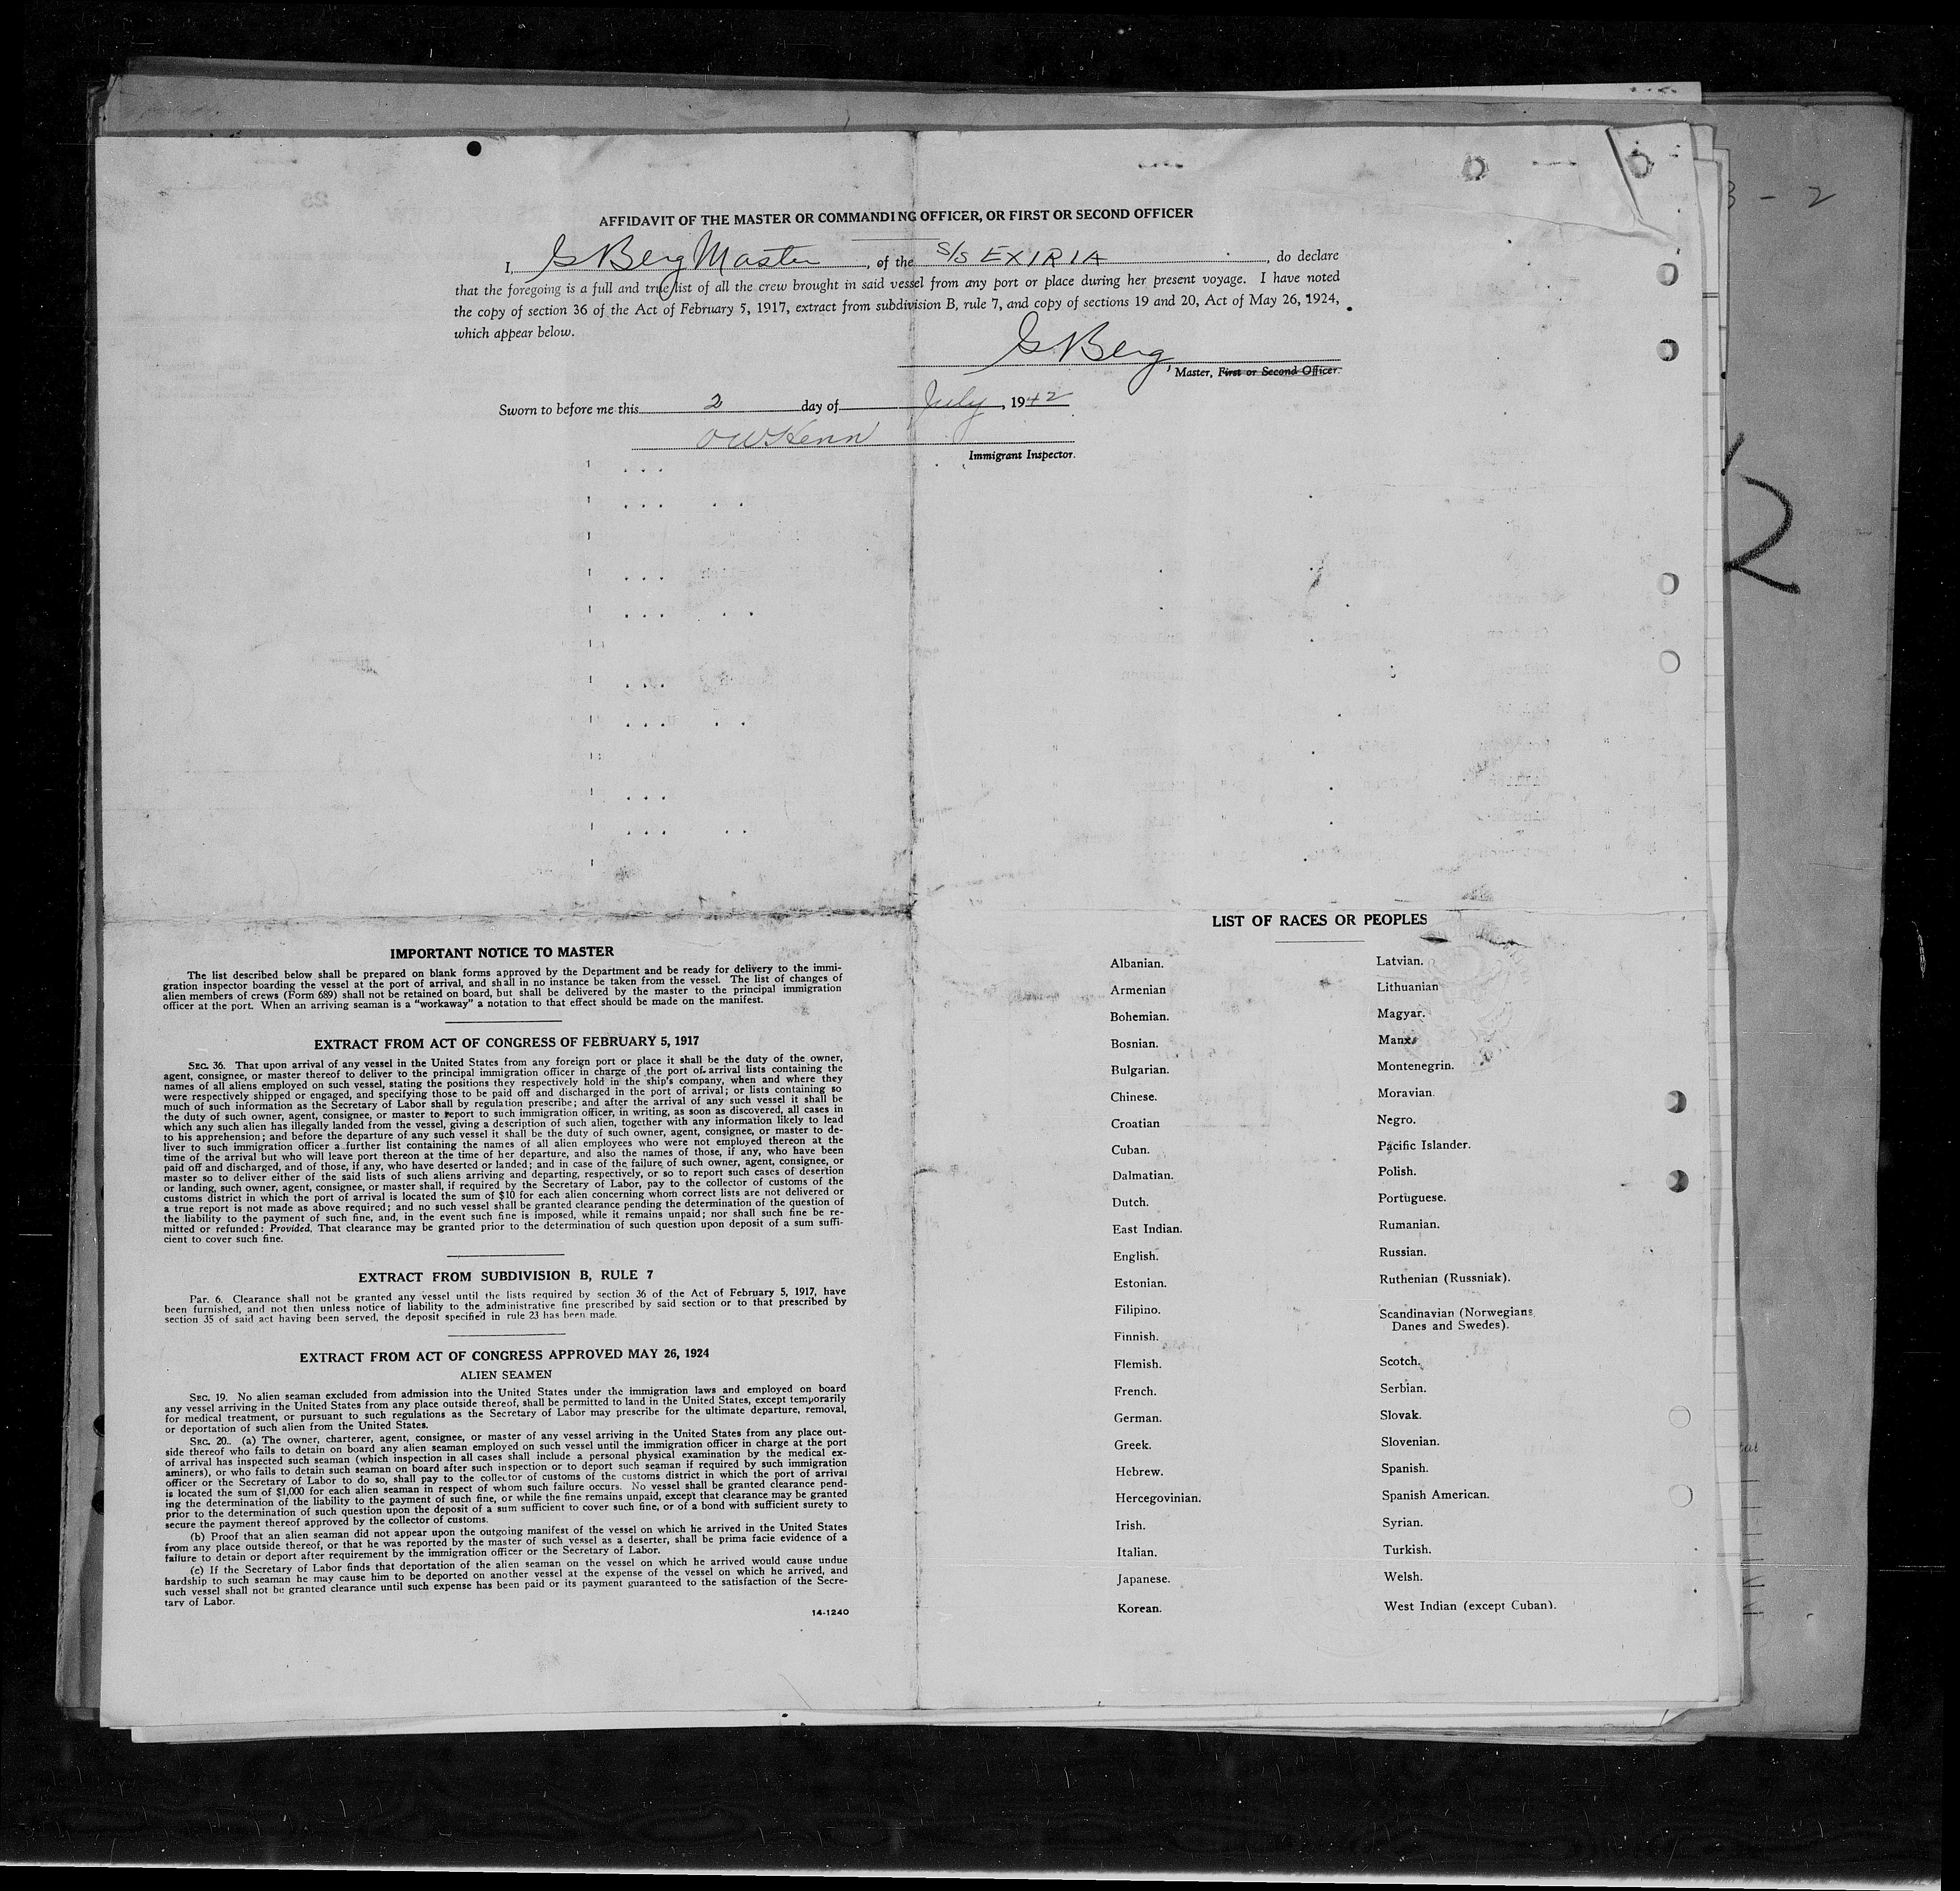 AFFIDAVIT OF THE MASTER OR COMMANDING OFFICER, OR FIRST OR SECOND OFFICER
I, G Berg Master, of the S/S EXIRIA, do declare
that the foregoing is a full and true list of all the crew brought in said vessel from any port or place during her present voyage. I have noted
the copy of section 36 of the Act of February 5, 1917, extract from subdivision B, rule 7, and copy of sections 19 and 20, Act of May 26, 1924,
which appear below.
G Berg
, Master, First or Second Officer.
Sworn to before me this 2 day of July, 1942
Immigrant Inspector.
IMPORTANT NOTICE TO MASTER
The list described below shall be prepared on blank forms approved by the Department and be ready for delivery to the immi-
gration inspector boarding the vessel at the port of arrival, and shall in no instance be taken from the vessel. The list of changes of
alien members of crews (Form 689) shall not be retained on board, but shall be delivered by the master to the principal immigration
officer at the port. When an arriving seaman is a "workaway" a notation to that effect should be made on the manifest.
EXTRACT FROM ACT OF CONGRESS OF FEBRUARY 5, 1917
SEC. 36. That upon arrival of any vessel in the United States from any foreign port or place it shall be the duty of the owner,
agent, consignee, or master thereof to deliver to the principal immigration officer in charge of the port of arrival lists containing the
names of all aliens employed on such vessel, stating the positions they respectively hold in the ship's company, when and where they
were respectively shipped or engaged, and specifying those to be paid off and discharged in the port of arrival; or lists containing so
much of such information as the Secretary of Labor shall by regulation prescribe; and after the arrival of any such vessel it shall be
the duty of such owner, agent, consignee, or master to report to such immigration officer, in writing, as soon as discovered, all cases in
which any such alien has illegally landed from the vessel, giving a description of such alien, together with any information likely to lead
to his apprehension; and before the departure of any such vessel it shall be the duty of such owner, agent, consignee, or master to de-
liver to such immigration officer a further list containing the names of all alien employees who were not employed thereon at the
time of the arrival but who will leave port thereon at the time of her departure, and also the names of those, if any, who have been
paid off and discharged, and of those, if any, who have deserted or landed; and in case of the failure of such owner, agent, consignee, or
master so to deliver either of the said lists of such aliens arriving and departing, respectively, or so to report such cases of desertion
or landing, such owner, agent, consignee, or master shall, if required by the Secretary of Labor, pay to the collector of customs of the
customs district in which the port of arrival is located the sum of $10 for each alien concerning whom correct lists are not delivered or
a true report is not made as above required; and no such vessel shall be granted clearance pending the determination of the question of
the liability to the payment of such fine, and, in the event such fine is imposed, while it remains unpaid; nor shall such fine be re-
mitted or refunded: Provided, That clearance may be granted prior to the determination of such question upon deposit of a sum suffi-
cient to cover such fine.
EXTRACT FROM SUBDIVISION B, RULE 7
Par. 6. Clearance shall not be granted any vessel until the lists required by section 36 of the Act of February 5, 1917, have
been furnished, and not then unless notice of liability to the administrative fine prescribed by said section or to that prescribed by
section 35 of said act having been served, the deposit specified in rule 23 has been made.
EXTRACT FROM ACT OF CONGRESS APPROVED MAY 26, 1924
ALIEN SEAMEN
SEC. 19. No alien seaman excluded from admission into the United States under the immigration laws and employed on board
any vessel arriving in the United States from any place outside thereof, shall be permitted to land in the United States, except temporarily
for medical treatment, or pursuant to such regulations as the Secretary of Labor may prescribe for the ultimate departure, removal,
or deportation of such alien from the United States.
SEC. 20. (a) The owner, charterer, agent, consignee, or master of any vessel arriving in the United States from any place out-
side thereof who fails to detain on board any alien seaman employed on such vessel until the immigration officer in charge at the port
of arrival has inspected such seaman (which inspection in all cases shall include a personal physical examination by the medical ex-
aminers), or who fails to detain such seaman on board after such inspection or to deport such seaman if required by such immigration
officer or the Secretary of Labor to do so, shall pay to the collector of customs of the customs district in which the port of arrival
is located the sum of $1,000 for each alien seaman in respect of whom such failure occurs. No vessel shall be granted clearance pend-
ing the determination of the liability to the payment of such fine, or while the fine remains unpaid, except that clearance may be granted
prior to the determination of such question upon the deposit of a sum sufficient to cover such fine, or of a bond with sufficient surety to
secure the payment thereof approved by the collector of customs.
(b) Proof that an alien seaman did not appear upon the outgoing manifest of the vessel on which he arrived in the United States
from any place outside thereof, or that he was reported by the master of such vessel as a deserter, shall be prima facie evidence of a
failure to detain or deport after requirement by the immigration officer or the Secretary of Labor.
(c) If the Secretary of Labor finds that deportation of the alien seaman on the vessel on which he arrived would cause undue
hardship to such seaman he may cause him to be deported on another vessel at the expense of the vessel on which he arrived, and
such vessel shall not be granted clearance until such expense has been paid or its payment guaranteed to the satisfaction of the Secre-
tary of Labor.
14-1240
LIST OF RACES OR PEOPLES
Albanian.
Armenian
Bohemian.
Bosnian.
Bulgarian.
Chinese.
Croatian
Cuban.
Dalmatian.
Dutch.
East Indian.
English.
Estonian.
Filipino.
Finnish.
Flemish.
French.
German.
Greek.
Hebrew.
Hercegovinian.
Irish.
Italian.
Japanese.
Korean.
Latvian.
Lithuanian
Magyar.
Manx.
Montenegrin.
Moravian.
Negro.
Pacific Islander.
Polish.
Portuguese.
Rumanian.
Russian.
Ruthenian (Russniak).
Scandinavian (Norwegians,
Danes and Swedes).
Scotch.
Serbian.
Slovak.
Slovenian.
Spanish.
Spanish American.
Syrian.
Turkish.
Welsh.
West Indian (except Cuban).